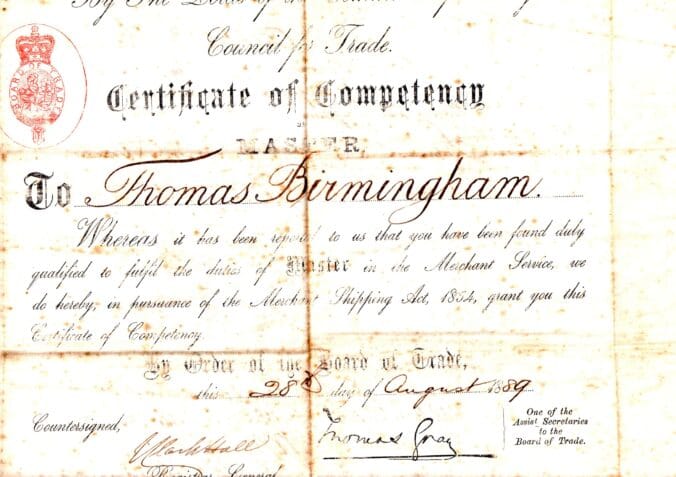 By The Lords of the
Council for Trade.
BOARD OF TRADE
Certificate of Competency
AS
MASTER.
To Thomas Birmingham.
Whereas it has been reported to us that you have been found duly
qualified to fulfil the duties of Master in the Merchant Service, we
do hereby, in pursuance of the Merchant Shipping Act, 1854, grant you this
Certificate of Competency.
By Order of the Board of Trade,
this 28th day of August 1889
Countersigned,
Thomas Gray
One of the
Assist Secretaries
to the
Board of Trade.
Registrar General